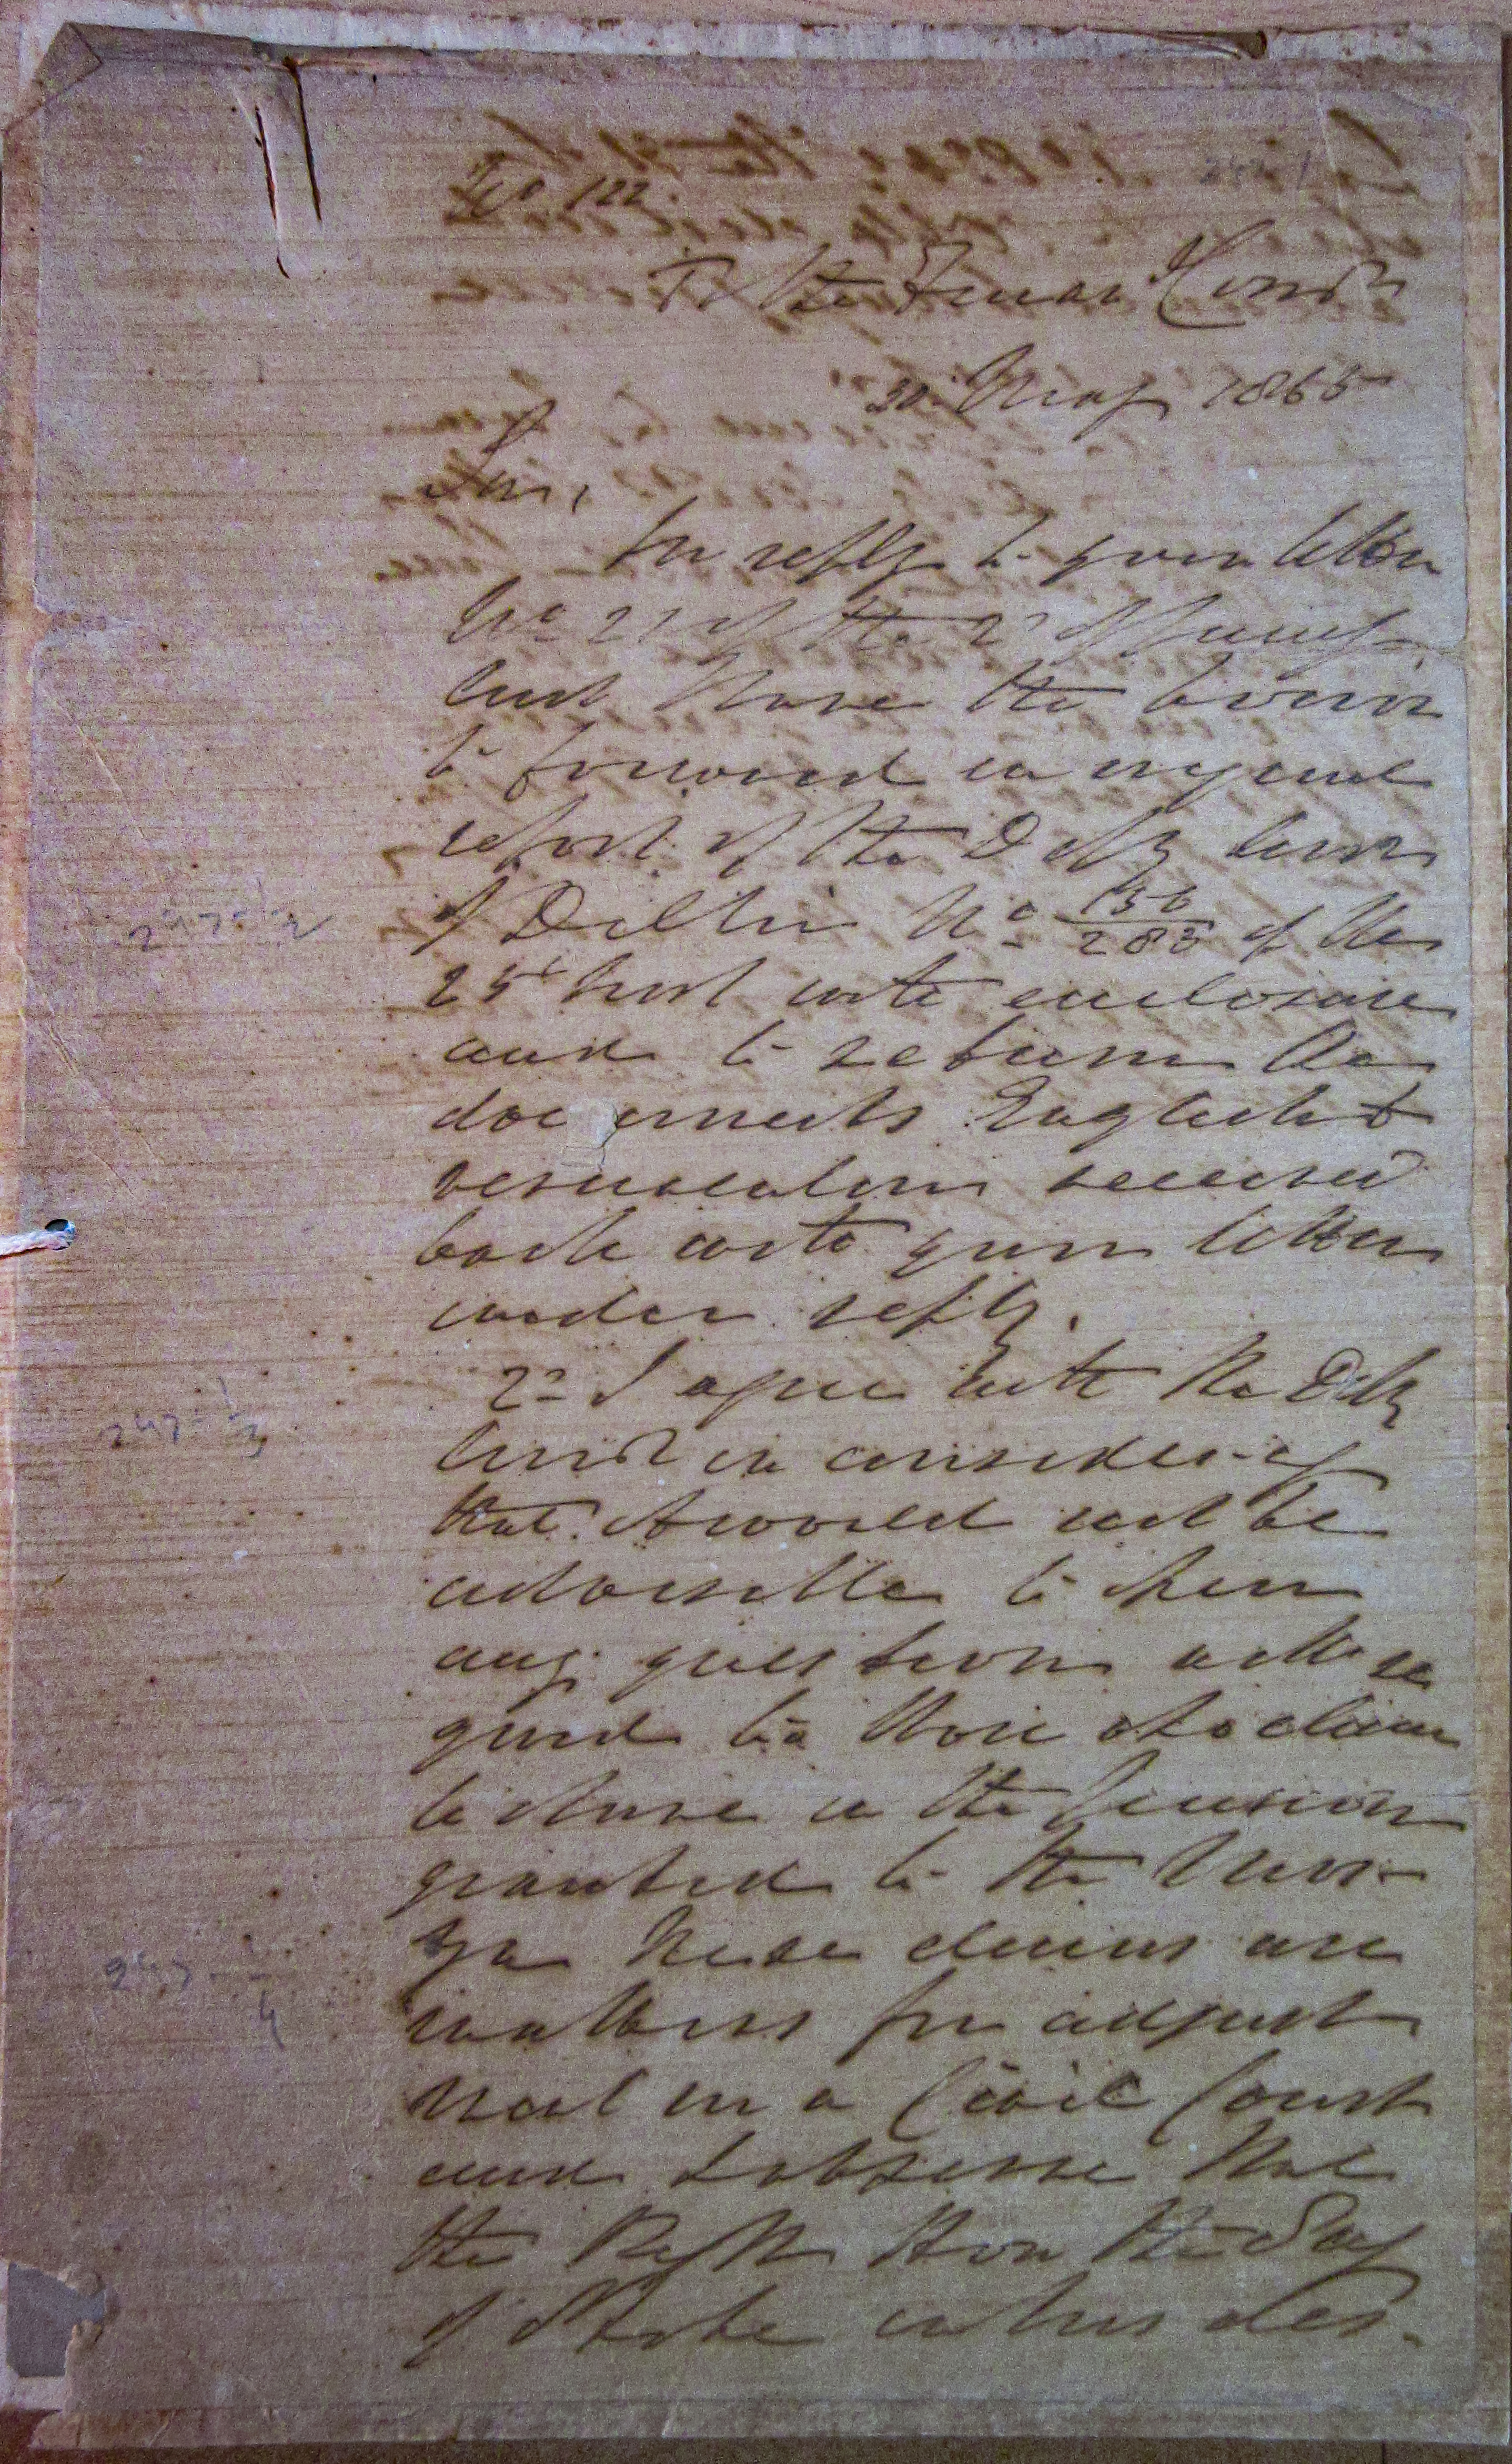 No 122.
To the Financl Comr
30 May 1865
Sir,
In reply to your letter
No 21 of the 2d of
Inst I have the honor
to forward in original
report of the Depy Comr
of Delhi No 156/285 of the
25th Inst with enclosure
and to return the
documents English &
vernacular received
back with your letter
under reply.
2d I agree with the Depy
Comr in considering
that it would not be
advisable to open
any question with re
gard to those who claim
to share in the pension
granted to the
these claims are
matters for adjust
ment in a Civil Court
and I observe that
the Right Hon the Secy
of State in his des-
247-1
247-1/2
247-1/3
247-1/4